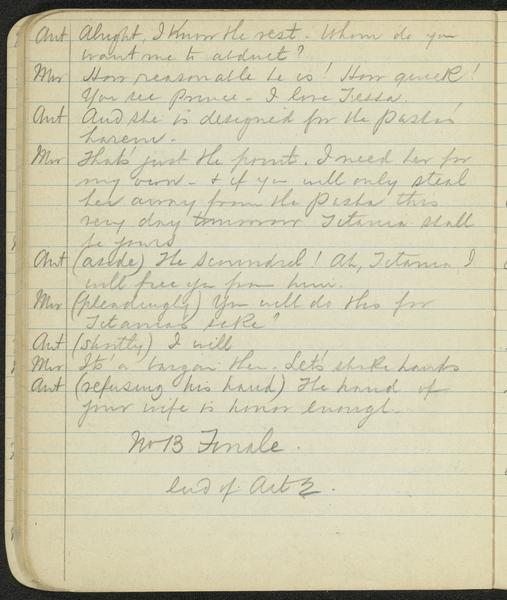 Ant Alright, I know the rest. Whom do you
want me to abduct?
Mur How reasonable he is! How quick!
You see Prince - I love Tessa.
Ant And she is designed for the Pasha's
harem.
Mur Thats just the point. I need her for
my own - & if you will only steal
her away from the Pasha this
very day tomorrow Titania shall
be yours
Ant (aside) The scoundrel! Ah, Titania I
will free you from him.
Mur (pleadingly) You will do this for
Titania's sake?
Ant (shortly) I will
Mur Its a bargain then. Let's shake hands
Ant (refusing his hand) The hand of
your wife is honor enough.
No 13 Finale.
End of Act 2.